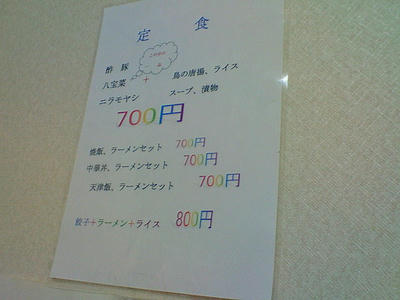 定 食
酢 豚
八宝菜
ニラモヤシ
+
鳥の唐揚、ライス
スープ、漬物
700円
焼飯、ラーメンセット 700円
中華丼、ラーメンセット 700円
天津飯、ラーメンセット 700円
餃子+ラーメン+ライス 800円